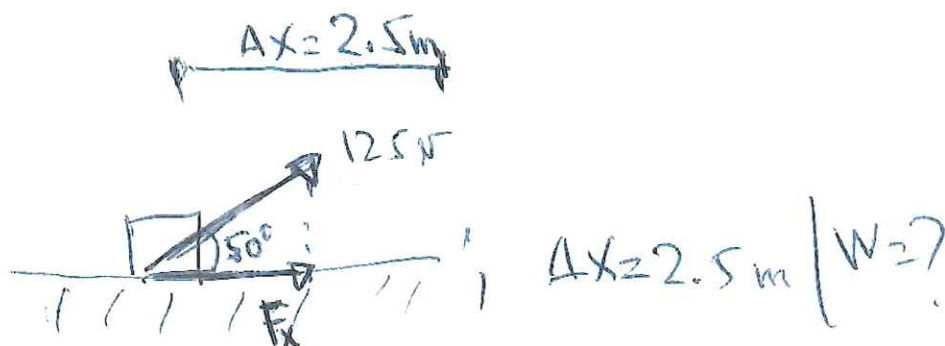 ΔX=2.5m
125N
50°
Fx
ΔX=2.5m | W=?